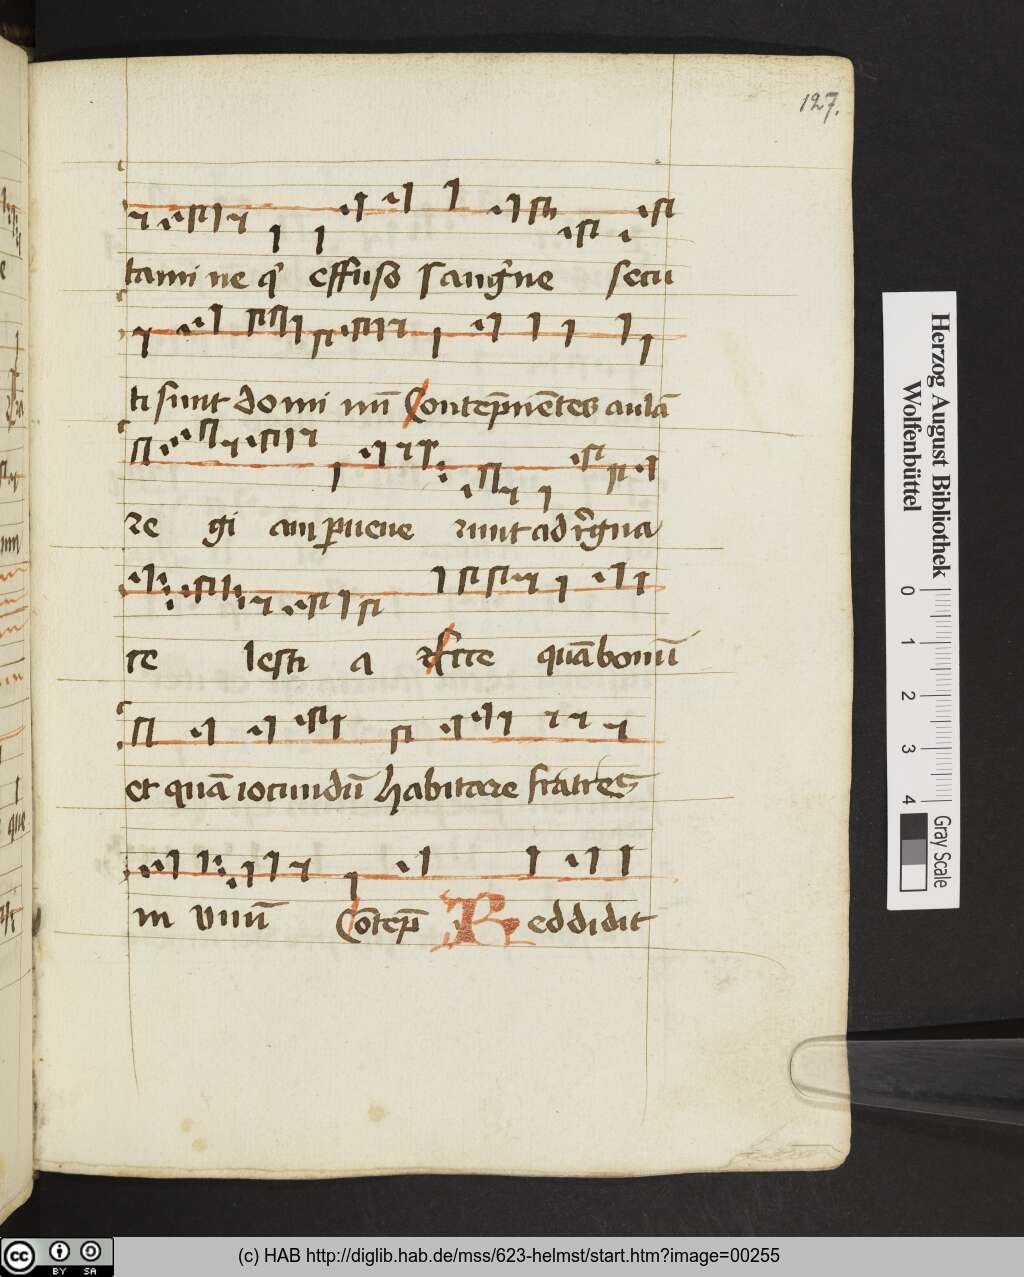 127.
tami ne q͛ effuso sang͛ne secu
ti sunt domi nū Contēpnētes aulā
re gi am ꝑuene runt ad regna
ce lesti a Ecce quā bonū
et quā iocundū habitare fratres
in vnū Cōtēp̄ Reddidit
Herzog August Bibliothek
Wolfenbüttel
0 1 2 3 4
Gray Scale
cc BY SA
(c) HAB http://diglib.hab.de/mss/623-helmst/start.htm?image=00255